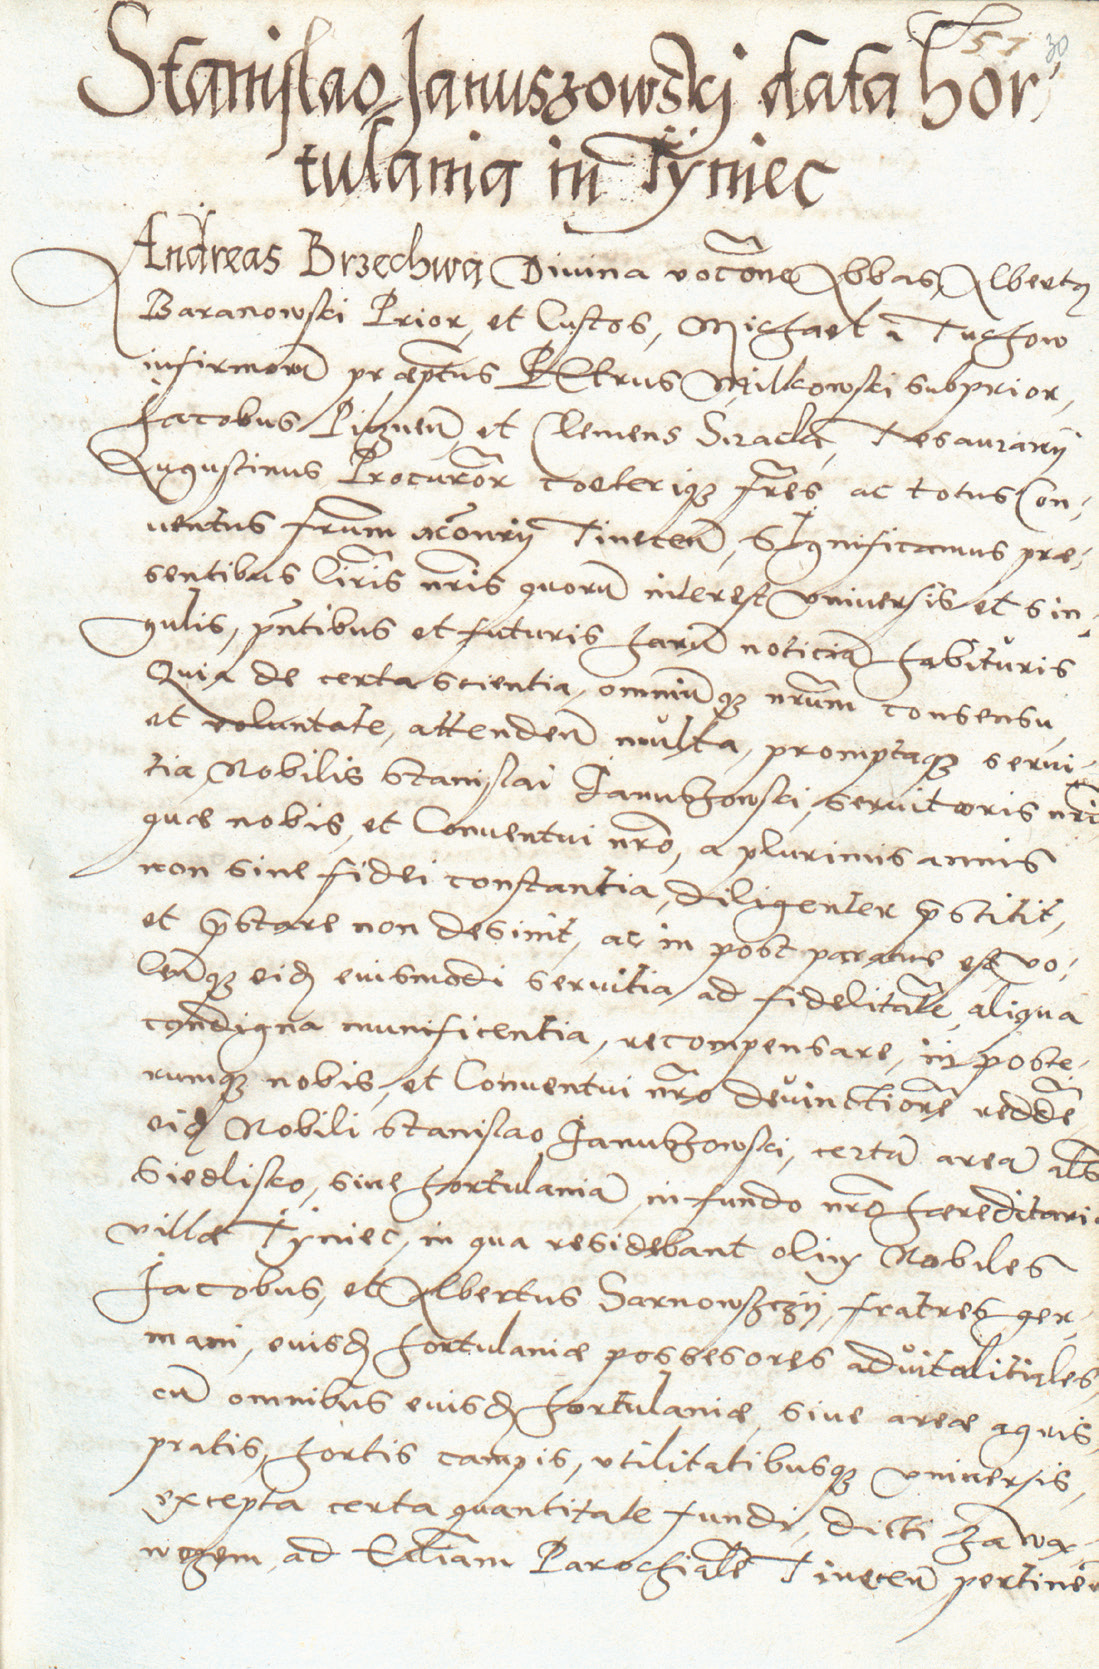 57 30
Stanislao Januszowskj data hor-
tulania in Tÿniec
Andreas Brzechwa Divina vocõne Abbas, Albertus
Baranowski Prior, et Custos, Michael à Tuchow
infirmorũ præptus Petrus Milkowski subprior,
Jacobus Pigneũ, et Clemens Siradę, Tesaurarÿ
Augustinus Procurõr coeteriq; frẽs ac totus Con-
uentus frũm Tinecen̄, Significamus præ-
sentibus lr̃is nr̃is quorũ interest vniuersis et sin-
gulis, pñtibus et futuris harũ noticiã habituris
Quia de certa scientia, omniũq; nr̃um consensu,
et voluntate, attenden̄ multa, promptaq; serui-
tia Nobilis Stanislai Janußowski, seruitoris nr̃i
quæ nobis, et Conuentui nr̃o, a plurimis annis
non sine fidei constantia, diligenter p̃stitit,
et p̃stare non desinit, ac in post paratus est, vo-
len̄q; eid̃ euismodi seruitia, ad fidelitatẽ, aliqua
condigna munificentia, recompensare, in poste-
rumq; nobis, et Conuentui nr̃o deuinctiorẽ reddẽ,
eid̃ Nobili Stanislao Janußowski, certã areã als
Siedlisko, siue hortulaniã, in fundo nr̃o hæreditario
villæ Tÿniec, in qua residebant olim Nobiles
Jacobus, et Albertus Sarnowsczÿ, fratres ger-
mani, euisd̃ hortulaniæ possesores aduitalitiales,
cũ omnibus euisd̃ hortulaniæ, siue areæ aquis,
pratis, hortis campis, vtilitatibusq; vniuersis,
excepta certa quantitate fundi, dicti
ad Ecclĩam Parochialẽ Tinecen̄ pertinẽ